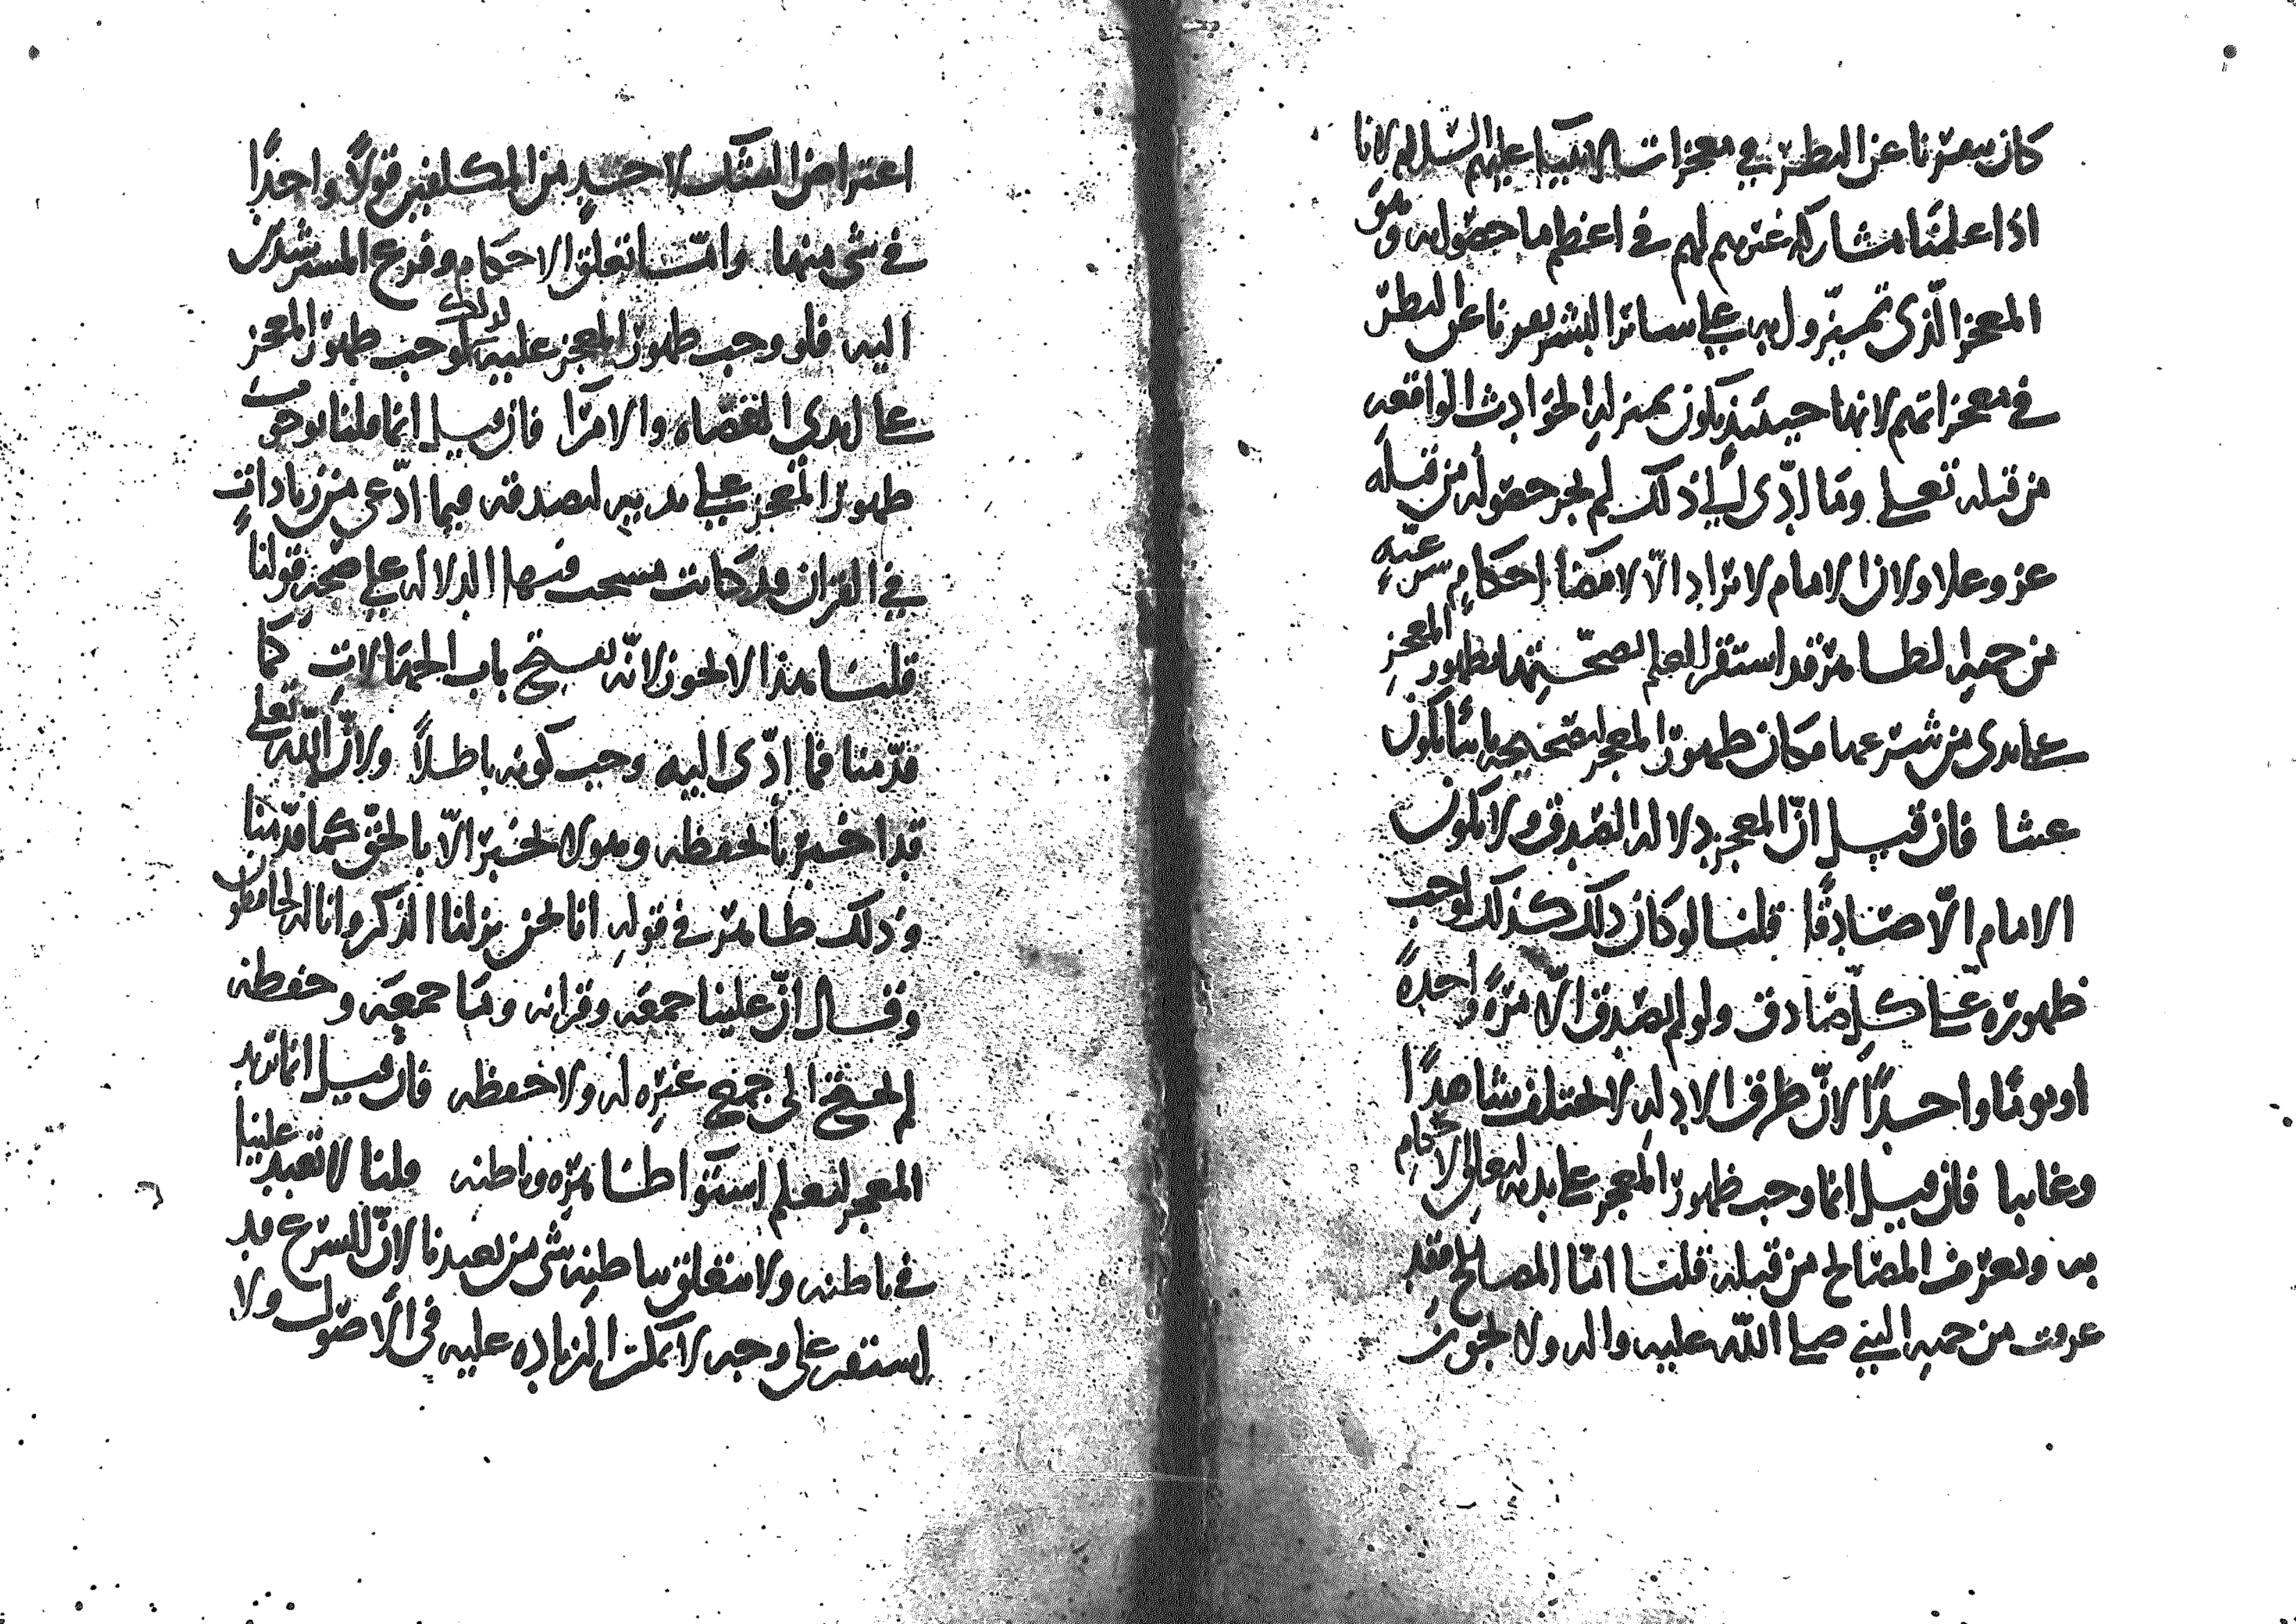 كان ينفرنا عن النظر في معجزات الانبياء عليهم السلام لانا
اذا علمنا مشاركة غيرهم لهم في اعظم ما حصوله وهو
المعجز الذي تميزوا به على سائر البشر نفرنا عن النظر
في معجزاتهم لانها حينئذ يكون بمنزلة الحوادث الواقعة
من قبله تعلى وما ادى الى ذلك لم يجز حصوله من قبله
عز وعلا ولان الامام لا يراد الا لامضا احكام شرعية
من جهة قد استقر العلم بصحتها بظهور المعجز
على يدي من شرعها فكان ظهور المعجز لتصحيح ما يكون
عبثا فان قيل ان المعجز دلالة الصدق ولا يكون
الامام الا صادقا قلنا لو كان ذلك كذلك لوجب
ظهوره على كل صادق ولو لم يصدق الا مرة واحدة
او يوما واحدا لان طرق الادلة لا تختلف شاهدا
وغائبا فان قيل انما وجب ظهور المعجز على يديه لتعلق الاحكام
به وتعرف المصالح من قبله قلنا اما المصالح فقد
عرفت من جهة النبي صلى الله عليه واله ولا يجوز
اعتراض الشك لاحد من المكلفين قولا واحدا
في شي منها واما تعلق الاحكام وفزع المسترشدين
اليه فلو وجب ظهور المعجز عليه لذلك لوجب ظهور المعجز
على ايدي القضاة والامرا فان قيل انما قلنا بوجوب
ظهور المعجز على يديه لصدقه فيما ادعى من زيادات
في القران قد كانت فيها الدلالة على صحة قولنا
قلنا هذا لا يجوز لانه يفتح باب الجهالات كما
قدمنا فما ادى اليه وجب كونه باطلا ولان الله تعلى
قد اخبرنا بحفظه وهو لا يخبر الا بالحق كما قدمنا
وذلك ظاهر في قوله انا نحن نزلنا الذكر وانا له لحافظون
وقال ان علينا جمعه وقرانه وما جمعه وحفظه
لم يحتج الى جمع غيره له ولا حفظه فان قيل انما نريد
المعجز لنعلم استوا ظاهره وباطنه قلنا لا تعبد علينا
في باطنه ولا يتعلق بباطنه شي من تعبدنا لان الشرع قد
استقر على وجه لا يمكن الزيادة عليه في الاصول ولا